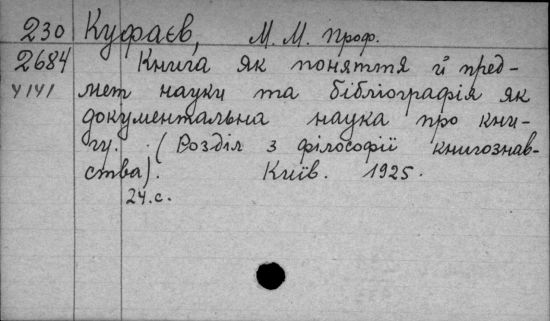 230 Куфаєв, М. М. Проф.
2684 Книга як поняття й пред-
У141 мет науки та бібліографія як
документальна наука про кни-
гу. (Розділ з філософії книгознав-
ства). Київ. 1925.
24.с.